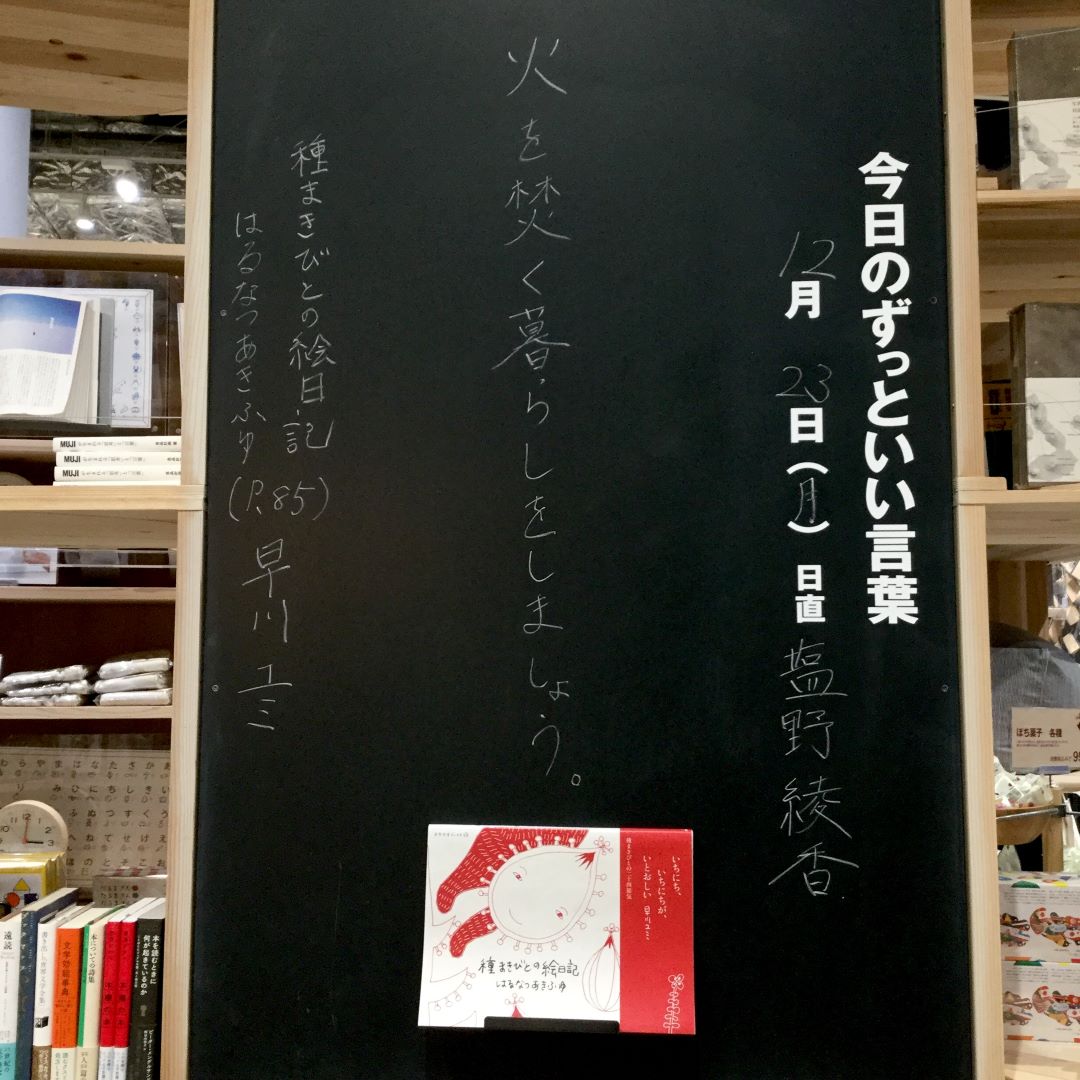 今日のずっといい言葉
12月 23日(月) 日直 塩野綾香
火を焚く暮らしをしましょう。
種まきびとの絵日記
はるなつあきふゆ (P.85) 早川ユミ
いちにち、
いちにちが、
いとおしい 早川ユミ
種まきびとの絵日記
はるなつあきふゆ
MUJI
MUJI
MUJI
ぽち菓子 各種
遠読
文学効能事典
本についての詩集
本を読むときに
何が起きているのか